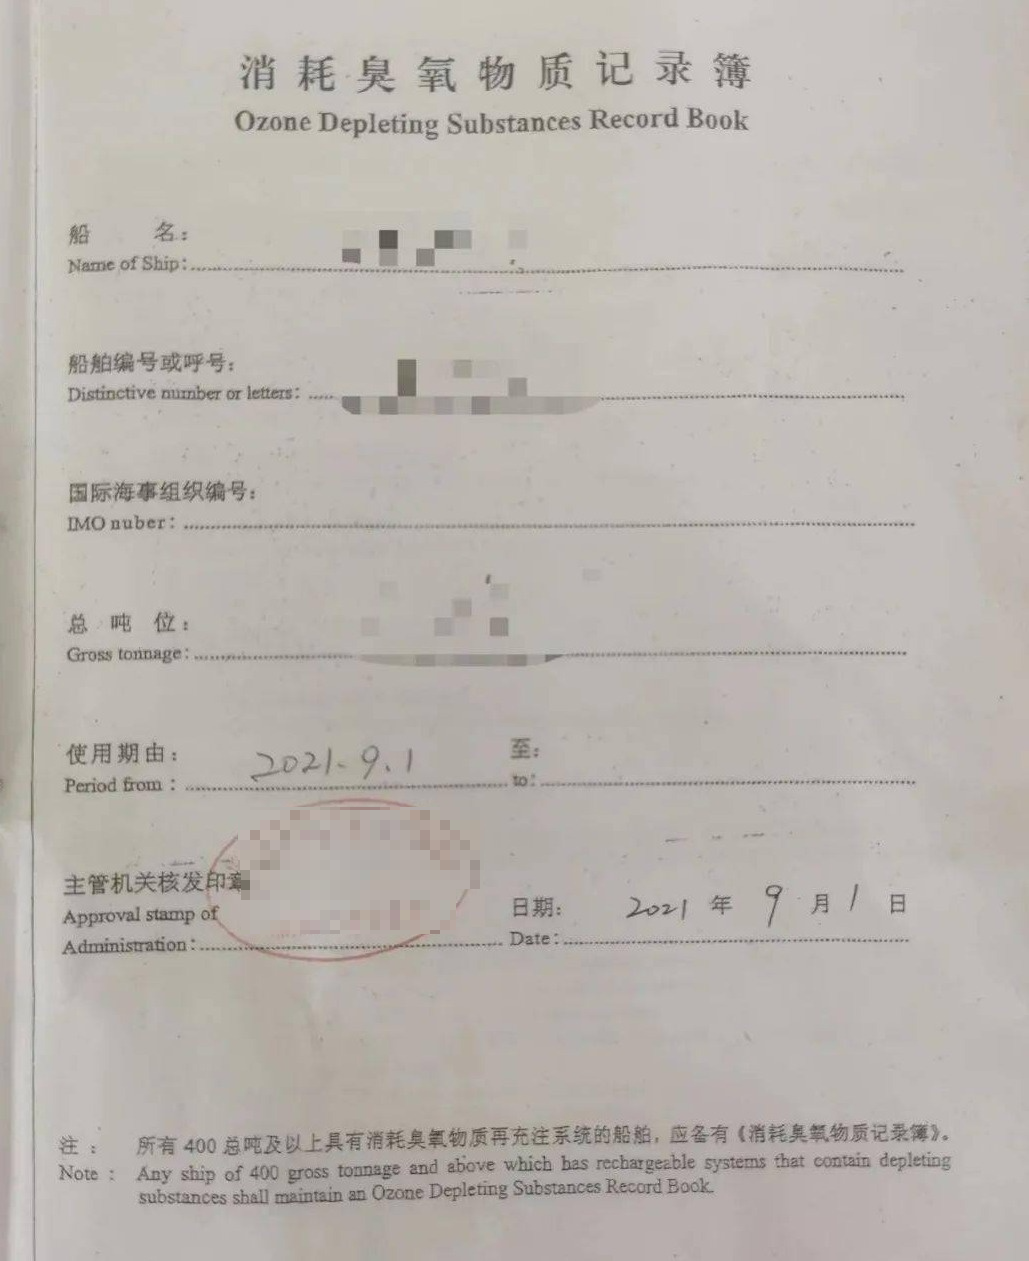 消耗臭氧物质记录簿
Ozone Depleting Substances Record Book
船 名：
Name of Ship:
船舶编号或呼号：
Distinctive number or letters:
国际海事组织编号：
IMO nuber:
总 吨 位：
Gross tonnage:
使用期由： 2021.9.1 至：
Period from: to:
主管机关核发印章
Approval stamp of
日期： 2021 年 9 月 1 日
Administration: Date:
注： 所有 400 总吨及以上具有消耗臭氧物质再充注系统的船舶，应备有《消耗臭氧物质记录簿》。
Note: Any ship of 400 gross tonnage and above which has rechargeable systems that contain depleting
substances shall maintain an Ozone Depleting Substances Record Book.